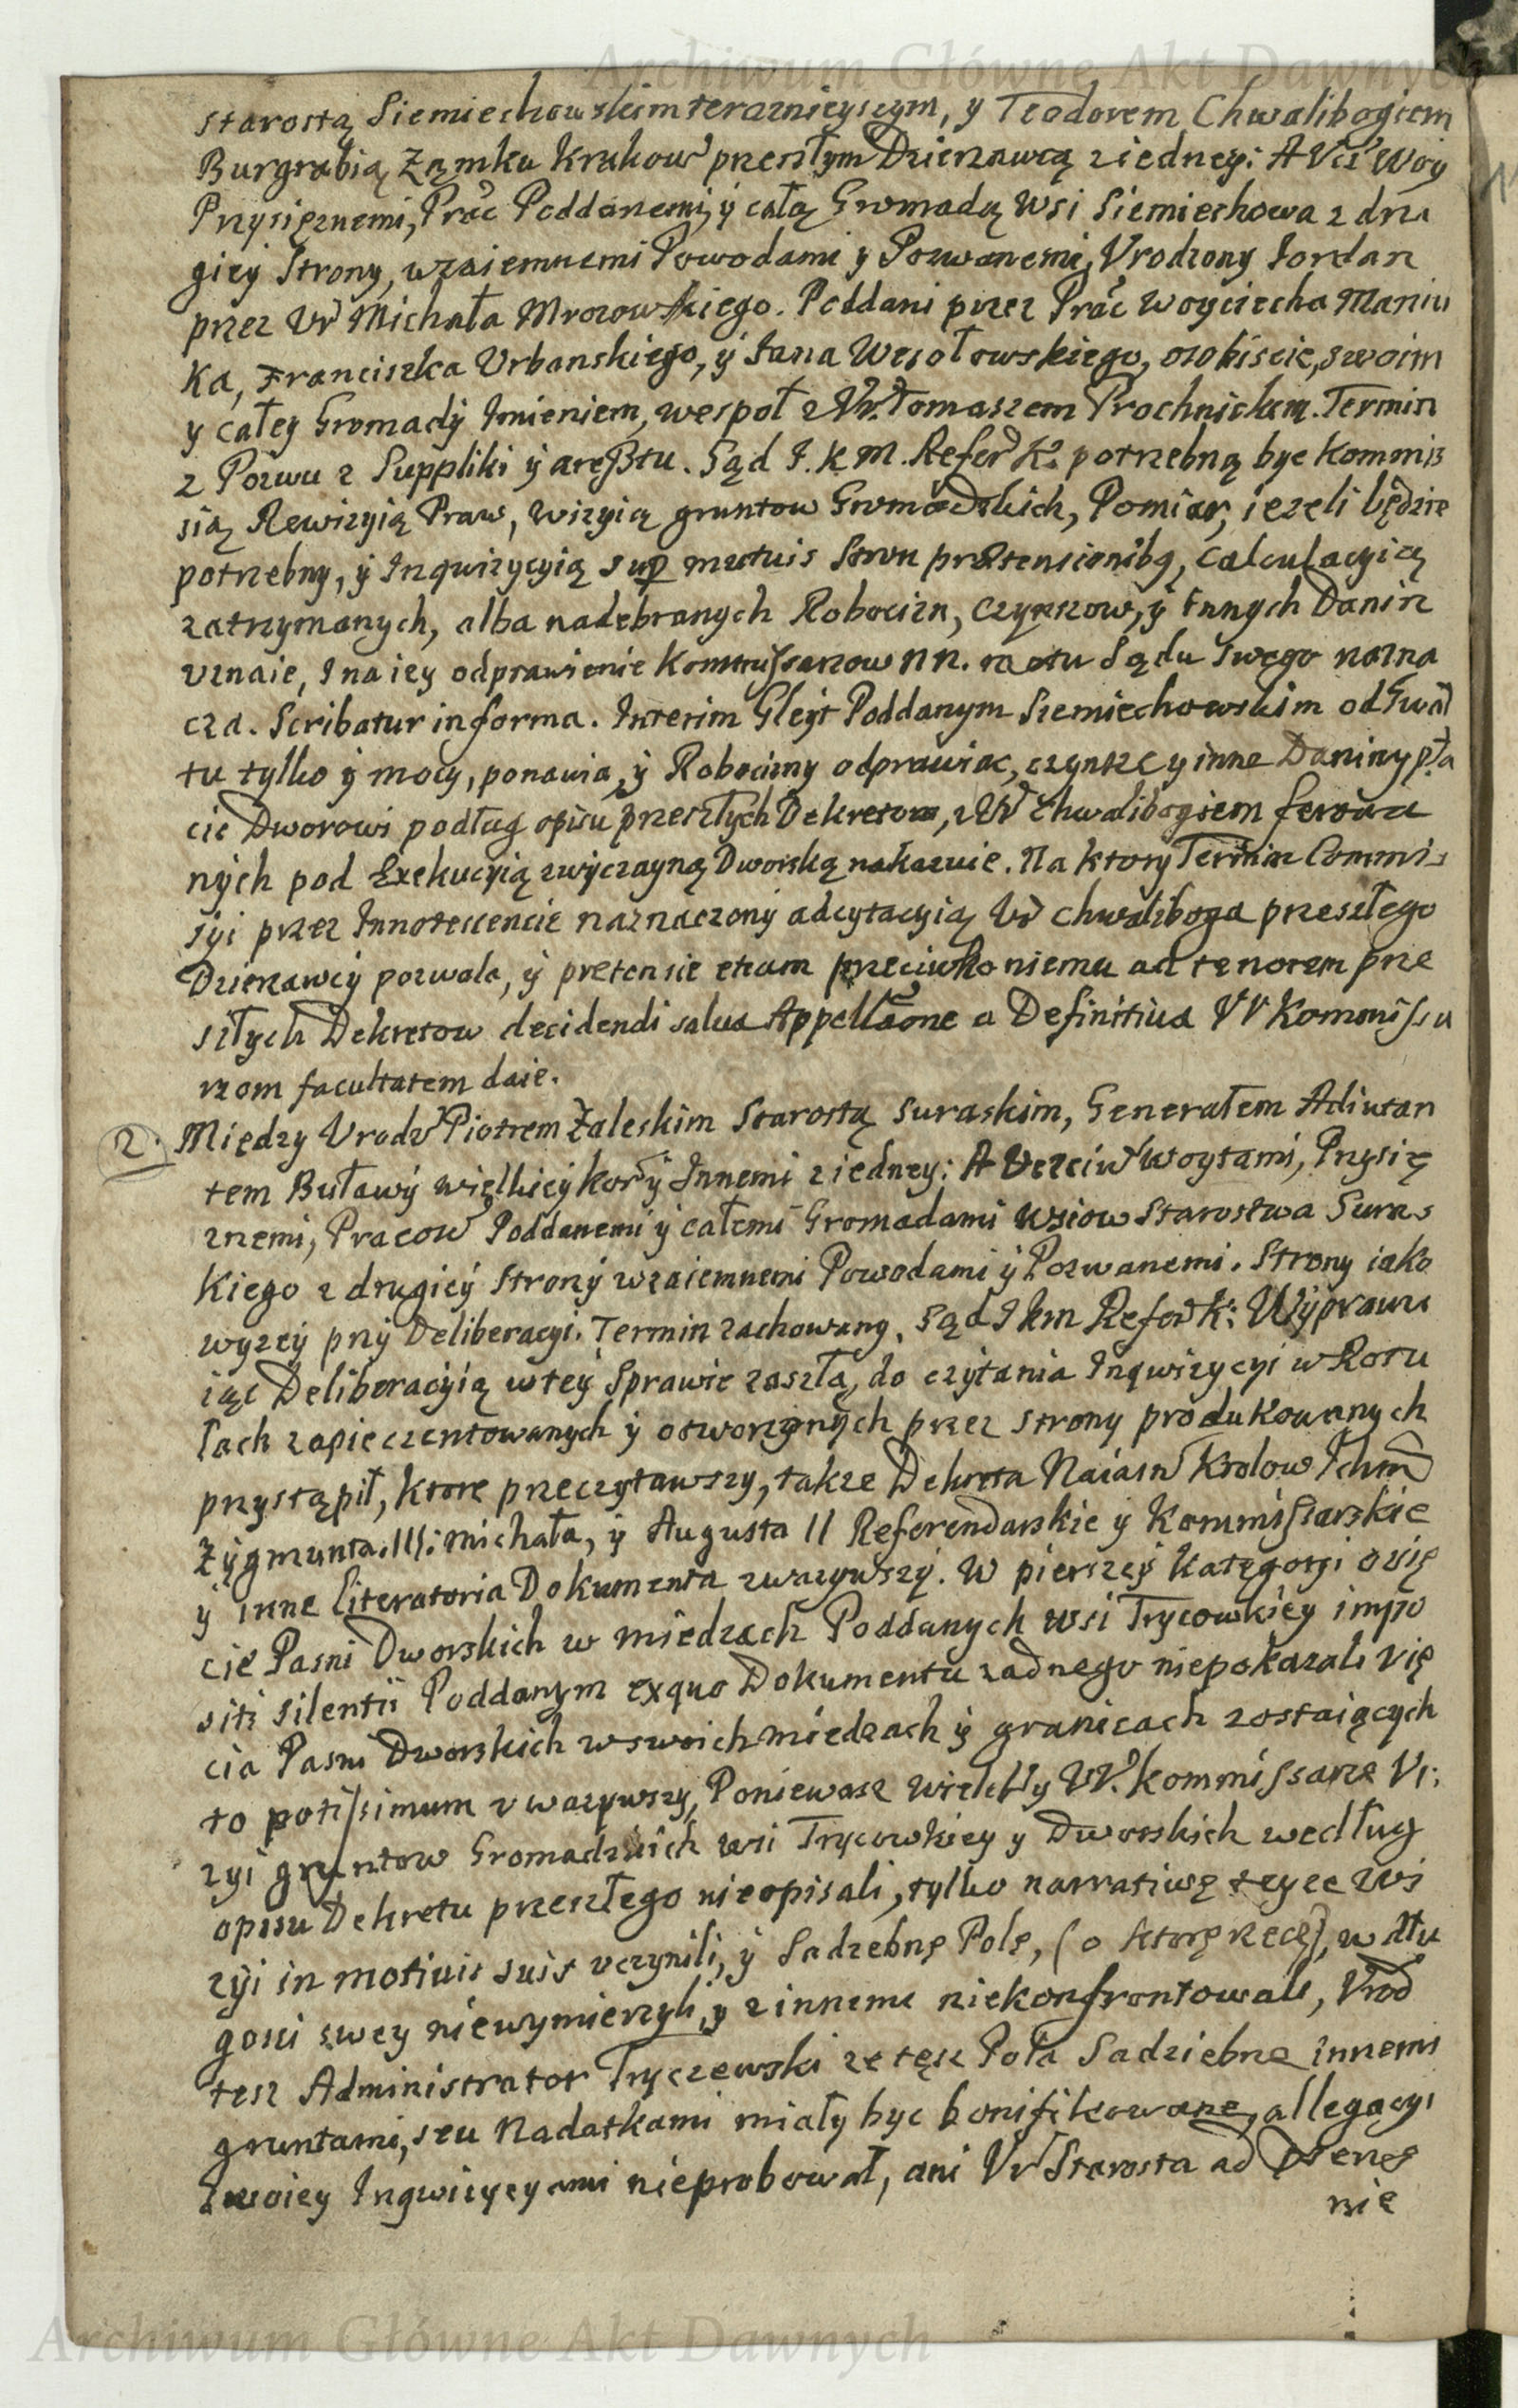 Archiwum Główne Akt Dawnych
starostą Siemiechowskim teraznieyszym, y Teodorem Chwalibogiem
Burgrabią Zamku Krakow przeszłym Dzierzawcą z iedney: A Vcz Woy
Przysięznemi, Prac Poddanemi, y całą Gromadą Wsi Siemiechowa z dru
giey Strony, wzaiemnemi Powodami y Pozwanemi, Vrodzony Jordan
przez Vr Michała Mrozowskiego. Poddani przez Prac Woyciecha Maniu
ka, Franciszka Vrbanskiego, y Jana Wesołowskiego, osobiscie, swoim
y całey Gromady Imieniem, wespoł z Vr. Tomaszem Prochnickim. Termin
z Pozwu z Suppliki y aresztu. Sąd J. K M. Refer K. potrzebną byc Kommis
sią Rewizyią Praw, wizyią gruntow Gromadzkich, Pomiar, iezeli będzie
potrzebny, y Inqwizycyią sup mutuis prætensionibg, calculacyią
zatrzymanych, albo nadebranych Robocizn, czynszow, y Innych Danin
vznaie, I na iey odprawienie Kommissarzow NN. sądu swego nazna
cza. Scribatur in forma. Interim Gleyt Poddanym Siemiechowskim od Gwał
tu tylko y mocy, ponawia, y Robocizny odprawiac, czynsze y inne Daniny pła
cic Dworowi podług opisu przeszłych Dekretow, z Vr Chwalibogiem
nych pod Exekucyią zwyczayną Dworską nakazuie. Na ktory Termin Commis
syi przez Innotescencie naznaczony adcytacyią Vr Chwaliboga przeszłego
Dzierzawcy pozwala, y pretensie etiam przeciwko niemu ad tenorem prze
szłych Dekretow decidendi salva Appellãone a Definitiva VV Kommissa
rzom facultatem daie.
2. Między Vrodz Piotrem Zaleskim Starostą Suraskim, Generałem Adiutan
tem Buławy wielkiey kor y Innemi z iedney: A Vczciw Woytami, Przysię
znemi, Pracow Poddanemi y całemi Gromadami Wsiow Starostwa Suras
kiego z drugiey strony wzaiemnemi Powodami y Pozwanemi. Strony iako
wyzey przy Deliberacyi. Termin zachowany. Sąd J k m Refer K: Wyprawu
iąc Deliberacyią w tey Sprawie zaszłą, do czytania Inqwizycyi w Rotu
łach zapieczentowanych y otworzonych przez strony produkowanych
przystąpił, ktore przeczytawszy, takze Dekreta Naiasn Krolow Ichm
Zygmunta. III: Michała, y Augusta II Referendarskie y Kommissarskie
y inne literatoria Dokumenta zwazywszy. W pierszey Kategoryi o vię
cie Pasni Dworskich w miedzach Poddanych wsi Trycowkiey impo
siti silentii Poddanym exquo Dokumentu zadnego niepokazali vię
cia Pasni Dworskich w swoich miedzach y granicach zostaiących
to potissimum vwazywszy, Poniewasz VV. Kommissarze Vi:
zyi gruntow Gromadzkich wsi Trycowkiey y Dworskich według
opisu Dekretu przeszłego nieopisali, tylko narratiwę teyze Wi
zyi in motivis suis vczynili, y Sadzebne Pole, (o ktore rzecz), w dłu
gosci swey niewymierzyli, y z innemi niekonfrontowali, Vrod
tesz Administrator Tryczewski ze tesz Pola Sadziebne innemi
gruntami, seu Nadatkami miały byc bonifikowane, allegacyi
swoiey Inqwizycyami nieprobował, ani Vr Starosta ad
nie
Archiwum Główne Akt Dawnych